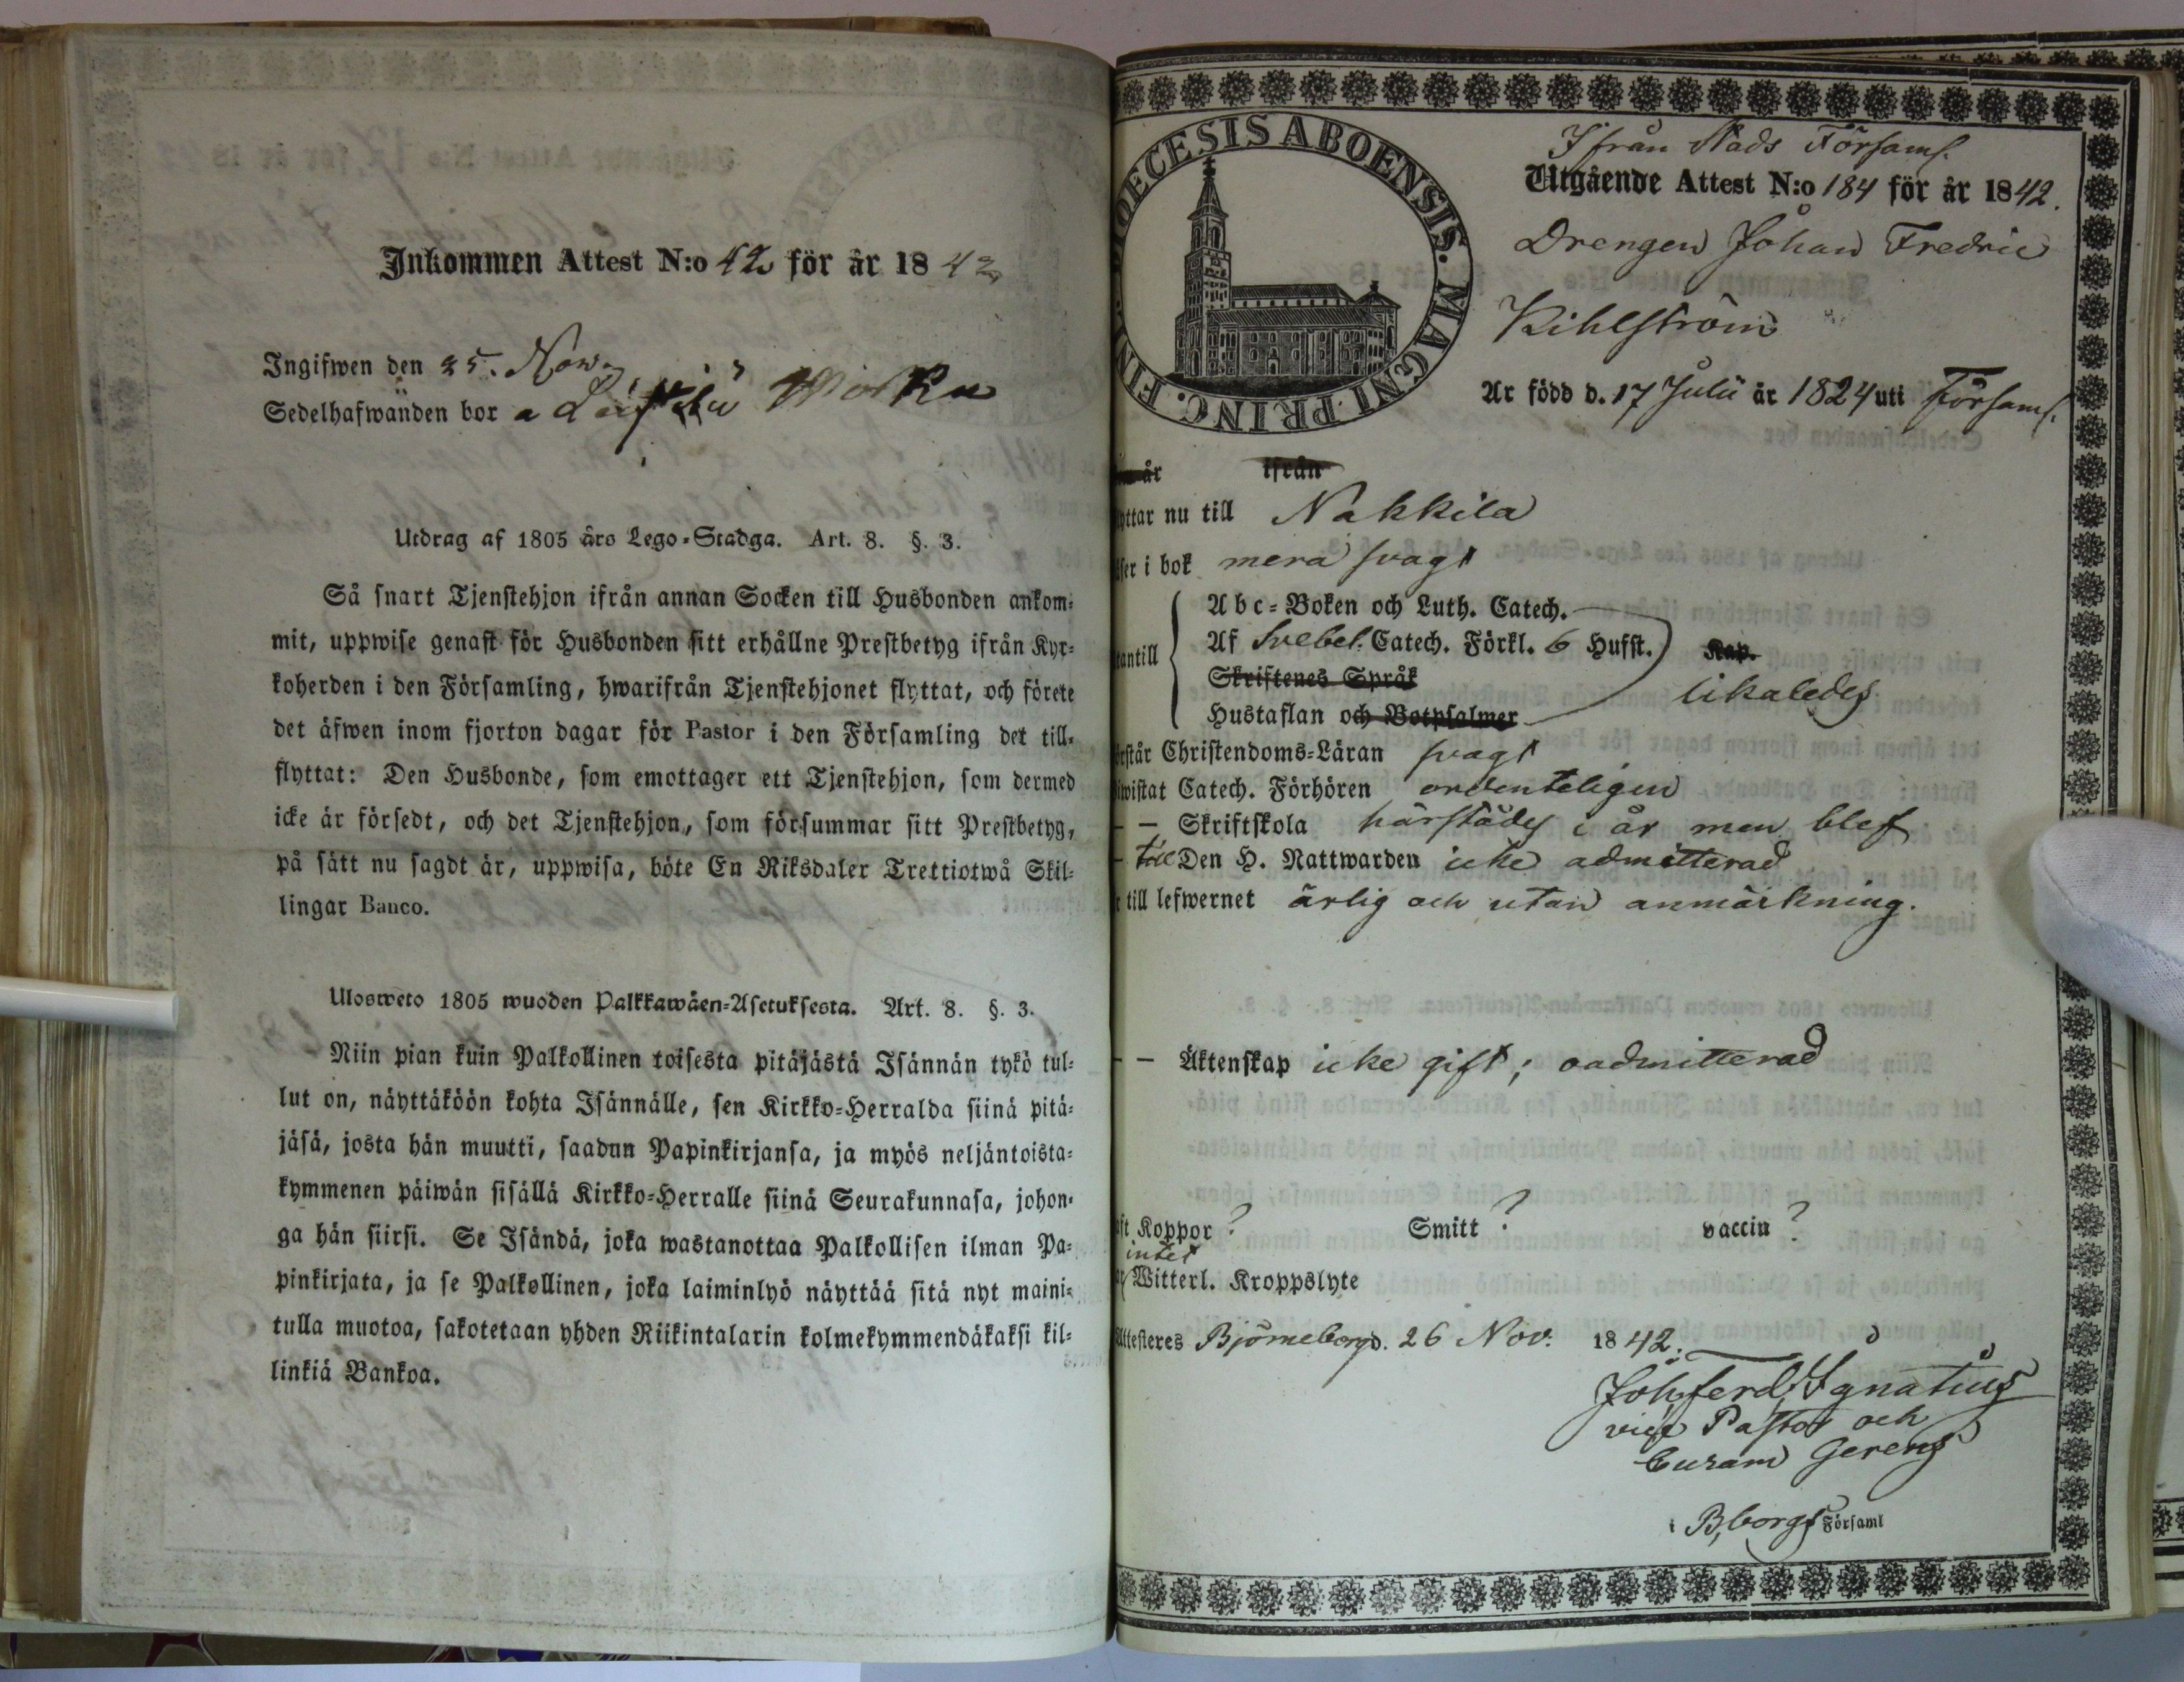 Inkommen Attest N:o 42 för år 1842
Ingifwen den 25. Nov.
Sedelhafwanden bor
Utdrag af 1805 års Lego-Stadga. Art. 8. §. 3.
Så snart Tjenstehjon ifrån annan Socken till Husbonden ankom-
mit, uppwise genast för Husbonden sitt erhållne Prestbetyg ifrån Kyr-
koherden i den Församling, hwarifrån Tjenstehjonet flyttat, och förete
det äfwen inom fjorton dagar för Pastor i den Församling det till-
flyttat: Den Husbonde, som emottager ett Tjenstehjon, som dermed
icke är försedt, och det Tjenstehjon, som försummar sitt Prestbetyg,
på sätt nu sagdt är, uppwisa, böte En Riksdaler Trettiotwå Skil-
lingar Banco.
Ulosweto 1805 wuoden Palkkawäen-Asetuksesta. Art. 8. §. 3.
Niin pian kuin Palkollinen toisesta pitäjästä Isännän tykö tul-
lut on, näyttäköön kohta Isännälle, sen Kirkko-Herralda siinä pitä-
jäsä, josta hän muutti, saadun Papinkirjansa, ja myös neljäntoista-
kymmenen päiwän sisällä Kirkko-Herralle siinä Seurakunnasa, johon-
ga hän siirsi. Se Isändä, joka wastanottaa Palkollisen ilman Pa-
pinkirjata, ja se Palkollinen, joka laiminlyö näyttää sitä nyt maini-
tulla muotoa, sakotetaan yhden Riikintalarin kolmekymmendäkaksi kil-
linkiä Bankoa.
DIOECESIS ABOENSIS. MAGNI PRINC. FIN
Ifrån Stads Församl.
Utgående Attest N:o 184 för år 1842.
Drengen Johan Fredric
Kihlström
Är född d. 17 Julii år 1824 uti Församl.
år ifrån
yttar nu till Nakkila
äser i bok mera svagt
Abc-Boken och Luth. Catech.
Af Svebel. Catech. Förkl. 6 Hufst. Kap.
tantill
Skriftenes Språk
likaledes
Hustaflan och Botpsalmer
örstår Christendoms-Läran svagt
iwistat Catech. Förhören ordenteligen
– – Skriftskola härstädes i år men blef
– till Den H. Nattwarden icke admitterad
r till lefwernet ärlig och utan anmärkning.
– – Äktenskap icke gift; oadmitterad
aft Koppor ? Smitt ? vaccin ?
intet
Witterl. Kroppslyte
Attesteres Björneborg d. 26 Nov. 1842.
Joh. Ferd. Ignatius
vice Pastor och
Curam Gerens
i B,borgs Församl